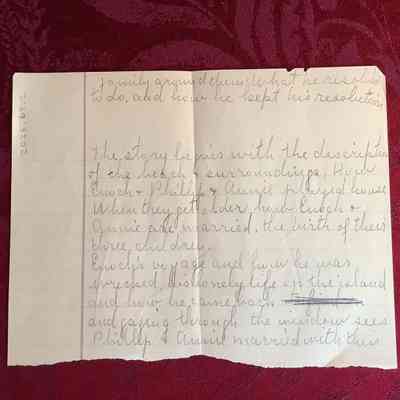 family around them, What he resolved
to do, and how he kept his resolution
The story begins with the description
of the beach & surroundings, How
Enoch & Phillip & Annie played house
When they get older how Enoch &
Annie are married, the birth of their
three children.
Enoch's voyage and how he was
wrecked, His lonely life on the island
and how he came back
and gazing through the window sees
Phillip & Annie married with their